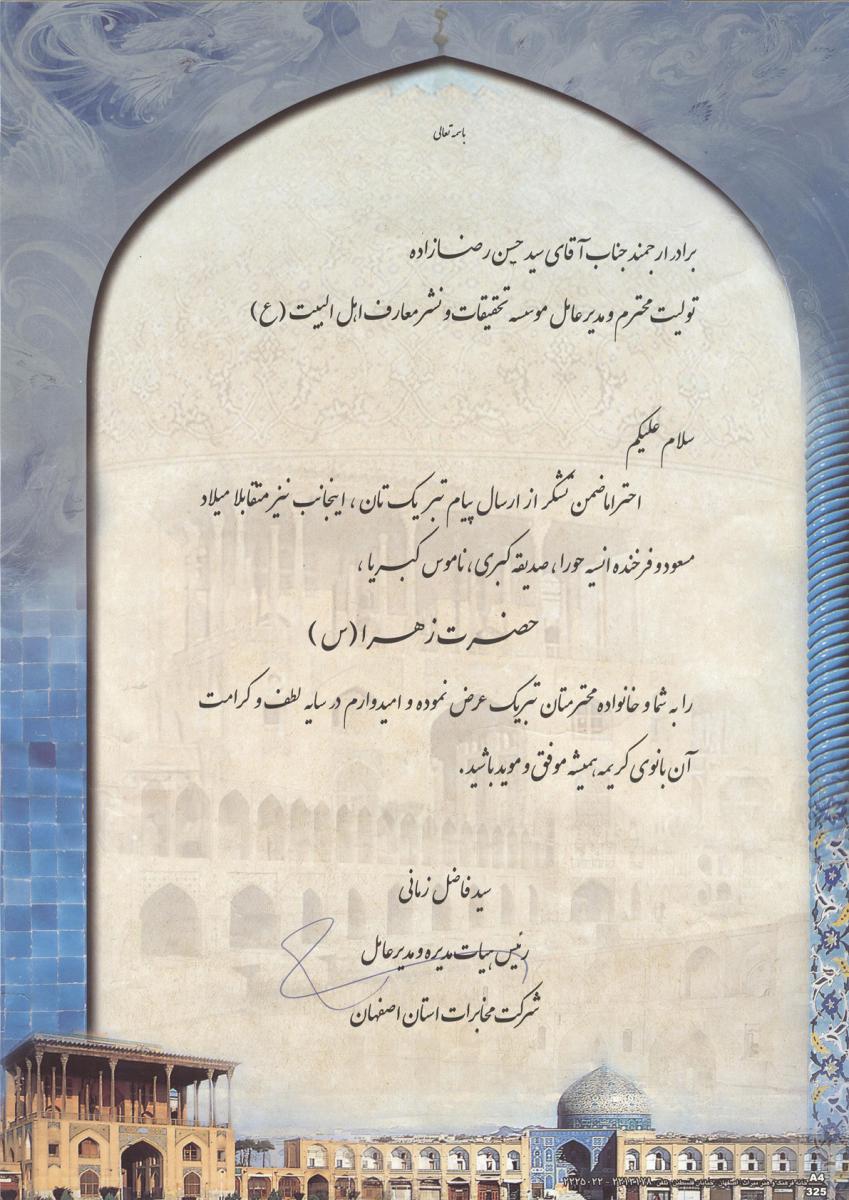 باسمه تعالی
برادر ارجمند جناب آقای سید حسن رضازاده
تولیت محترم و مدیر عامل موسسه تحقیقات و نشر معارف اهل البیت (ع)
سلام علیکم
احتراما ضمن تشکر از ارسال پیام تبریک تان ، اینجانب نیز متقابلا میلاد
مسعود و فرخنده انسیه حورا ، صدیقه کبری ، ناموس کبریا ،
حضرت زهرا (س)
را به شما و خانواده محترمتان تبریک عرض نموده و امیدوارم در سایه لطف و کرامت
آن بانوی کریمه همیشه موفق و موید باشید .
سید فاضل زمانی
رئیس هیات مدیره و مدیر عامل
شرکت مخابرات استان اصفهان
۲۲۱۲۰۱۷۸ - ۲۲۲۵۰۲۲
A4
325